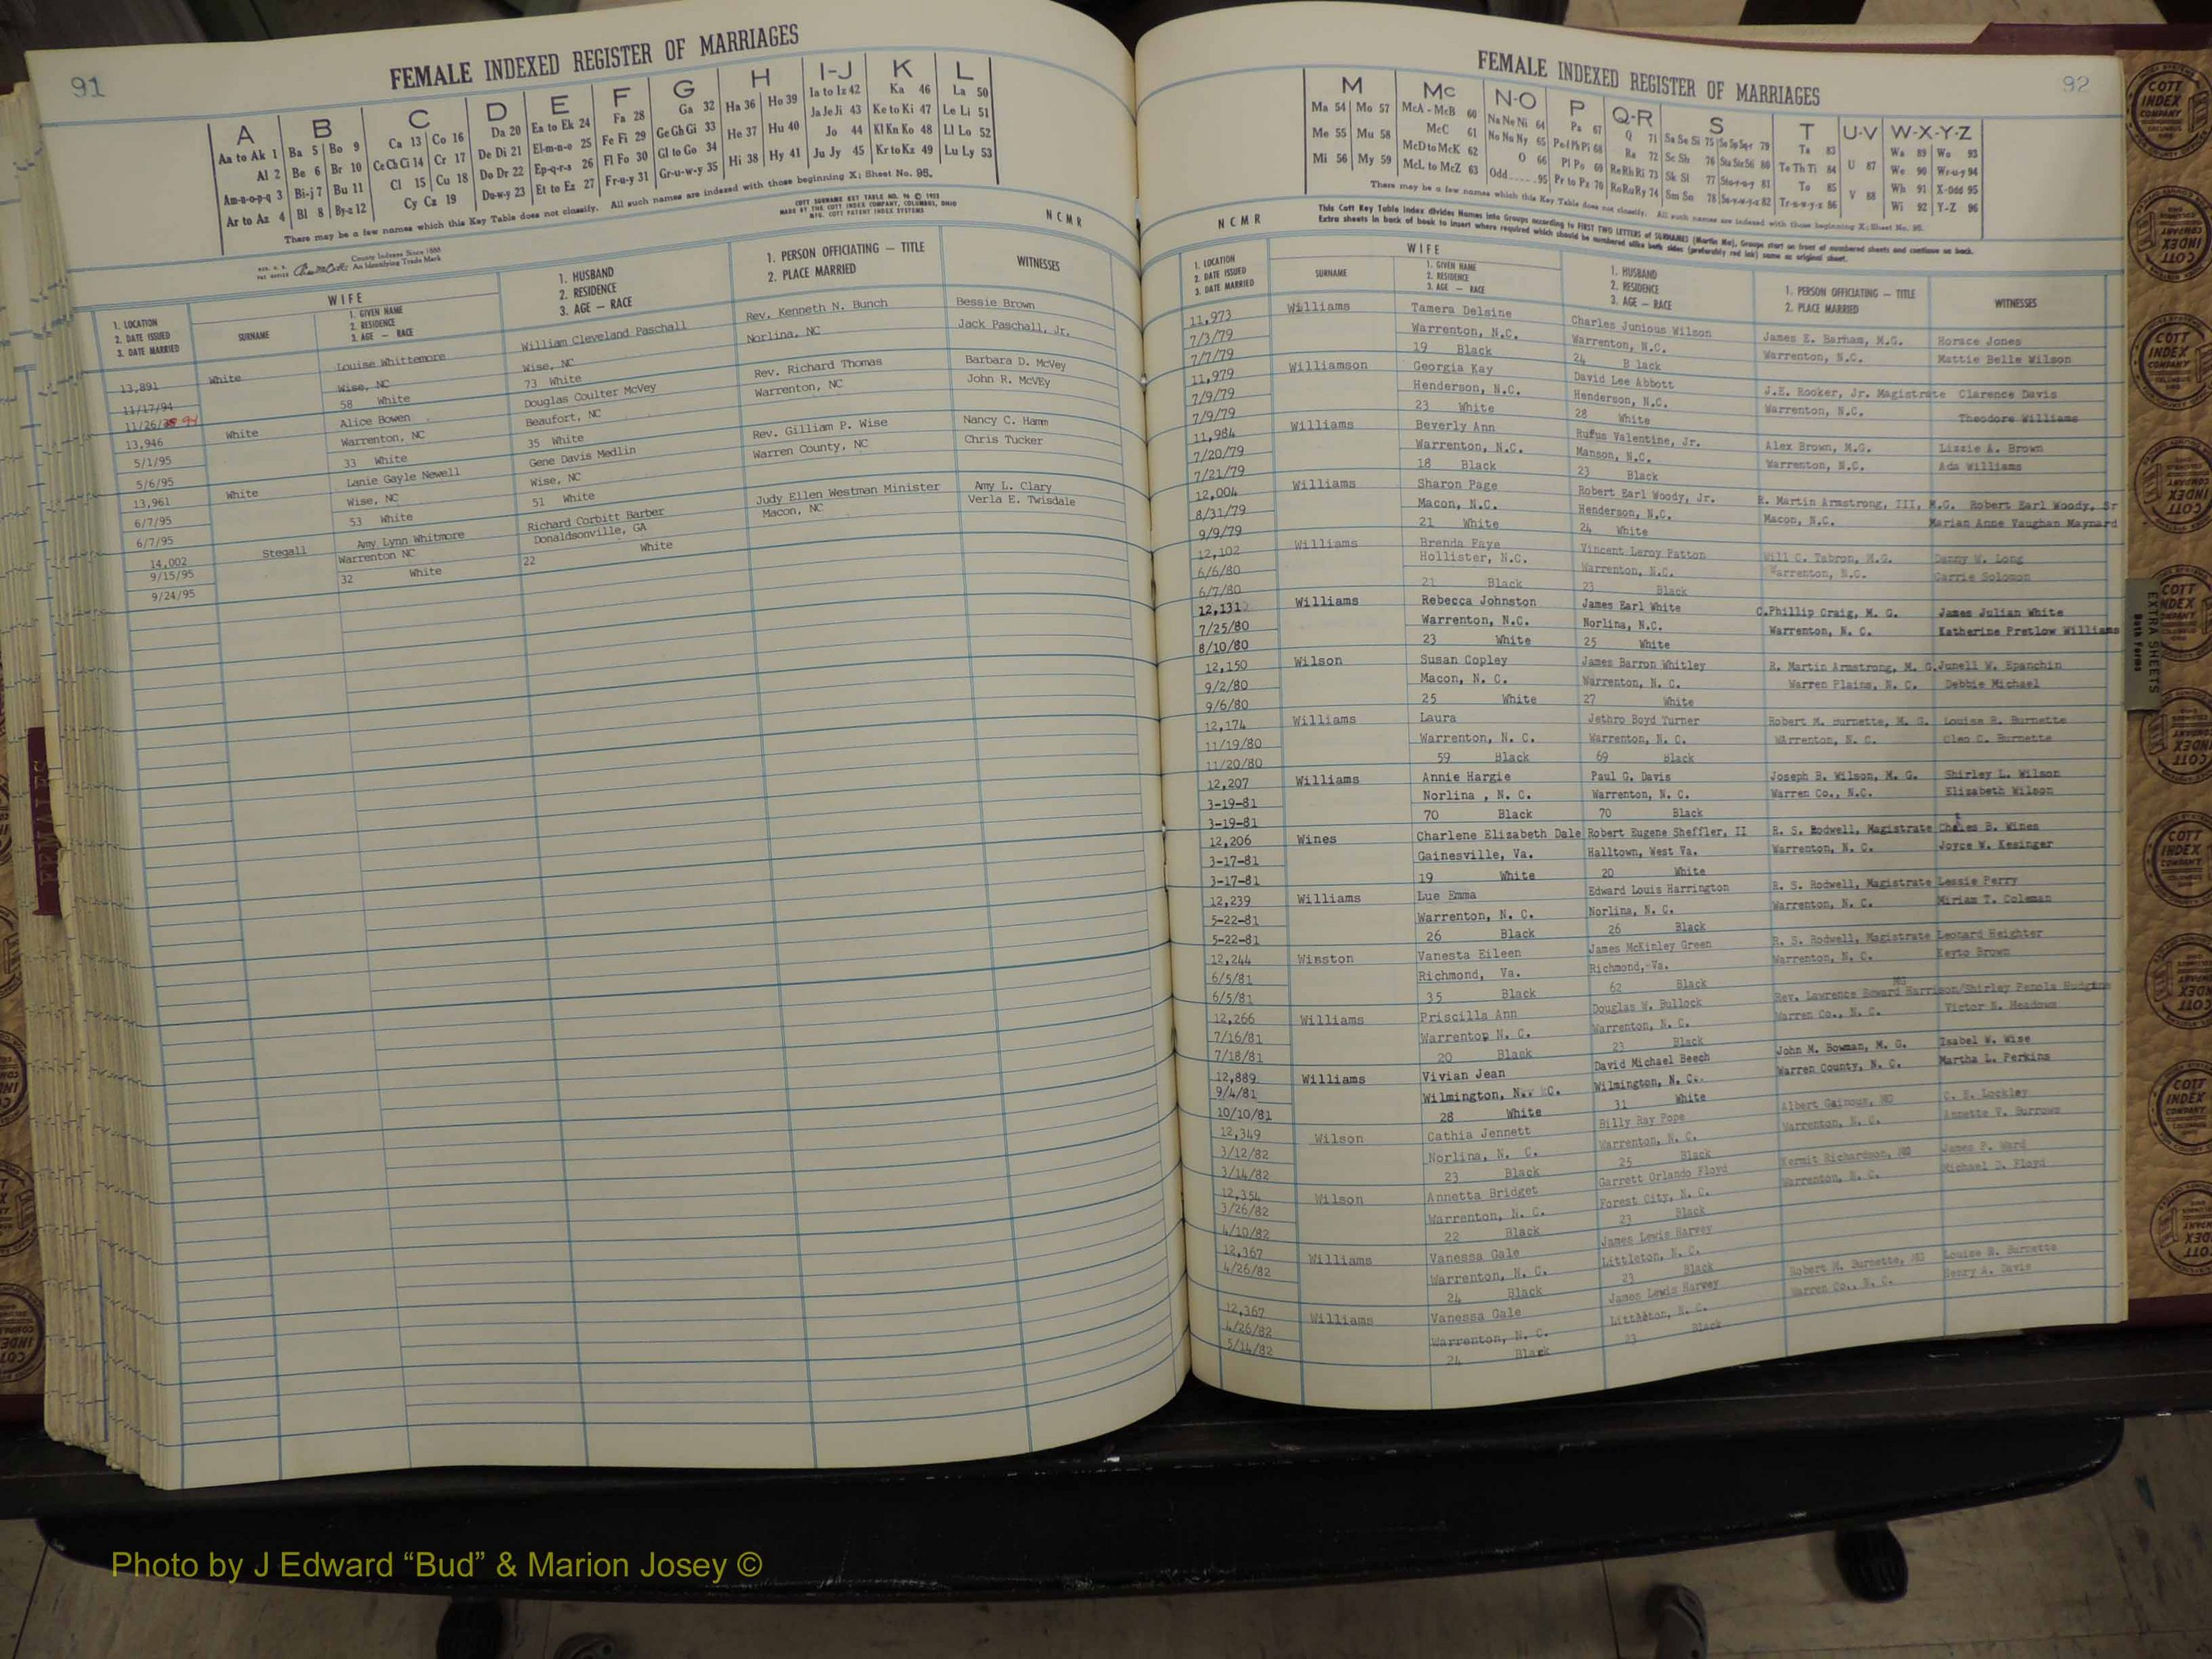 91
FEMALE INDEXED REGISTER OF MARRIAGES
A B C D E F G H I-J K L
Aa to Ak 1 Ba 5 Bo 9 Ca 13 Co 16 Da 20 Ea to Ek 24 Fa 28 Ga 32 Ha 36 Ho 39 Ia to Iz 42 Ka 46 La 50
Al 2 Be 6 Br 10 Ce Ch Ci 14 Cr 17 De Di 21 El-m-n-o 25 Fe Fi 29 Ge Gh Gi 33 He 37 Hu 40 Ja Je Ji 43 Ke to Ki 47 Le Li 51
Am-n-o-p-q 3 Bi-j 7 Bu 11 Cl 15 Cu 18 Do Dr 22 Ep-q-r-s 26 Fl Fo 30 Gl to Go 34 Hi 38 Hy 41 Jo 44 Kl Kn Ko 48 Ll Lo 52
Ar to Az 4 Bl 8 By-z 12 Cy Cz 19 Du-w-y 23 Et to Ez 27 Fr-u-y 31 Gr-u-w-y 35 Ju Jy 45 Kr to Kz 49 Lu Ly 53
There may be a few names which this Key Table does not classify. All such names are indexed with those beginning X; Sheet No. 95.
COTT SURNAME KEY TABLE NO. 96 © 1952
MADE BY THE COTT INDEX COMPANY, COLUMBUS, OHIO
MFG. COTT PATENT INDEX SYSTEMS
NCMR
County Indexes Since 1888
An Identifying Trade Mark
1. LOCATION
2. DATE ISSUED
3. DATE MARRIED
WIFE
SURNAME
1. GIVEN NAME
2. RESIDENCE
3. AGE — RACE
1. HUSBAND
2. RESIDENCE
3. AGE — RACE
1. PERSON OFFICIATING — TITLE
2. PLACE MARRIED
WITNESSES
13,891 White Louise Whittemore William Cleveland Paschall Rev. Kenneth N. Bunch Bessie Brown
11/17/94 Wise, NC Wise, NC Norlina, NC Jack Paschall, Jr.
11/26/ 94 58 White 73 White
13,946 White Alice Bowen Douglas Coulter McVey Rev. Richard Thomas Barbara D. McVey
5/1/95 Warrenton, NC Beaufort, NC Warrenton, NC John R. McVEy
5/6/95 33 White 35 White
13,961 White Lanie Gayle Newell Gene Davis Medlin Rev. Gilliam P. Wise Nancy C. Hamm
6/7/95 Wise, NC Wise, NC Warren County, NC Chris Tucker
6/7/95 53 White 51 White
14,002 Stegall Amy Lynn Whitmore Richard Corbitt Barber Judy Ellen Westman Minister Amy L. Clary
9/15/95 Warrenton NC Donaldsonville, GA Macon, NC Verla E. Twisdale
9/24/95 32 White 22 White
92
FEMALE INDEXED REGISTER OF MARRIAGES
M Mc N-O P Q-R S T U-V W-X-Y-Z
Ma 54 Mo 57 McA - McB 60 Na Ne Ni 64 Pa 67 Q 71 Sa Se Si 75 So Sp Sq-r 79 Ta 83 Wa 89 Wo 93
Me 55 Mu 58 McC 61 No Nu Ny 65 Pe-f Ph Pi 68 Ra 72 Sc Sh 76 Sta Ste St 80 Te Th Ti 84 U 87 We 90 Wr-u-y 94
Mi 56 My 59 McD to McK 62 O 66 Pl Po 69 Re Rh Ri 73 Sk Sl 77 Sto-r-u-y 81 To 85 Wh 91 X-odd 95
McL to McZ 63 Odd 95 Pr to Pz 70 Ro Ru Ry 74 Sm Sn 78 Su-v-w-y-z 82 Tr-u-w-y-z 86 V 88 Wi 92 Y-Z 96
There may be a few names which this Key Table does not classify. All such names are indexed with those beginning X; Sheet No. 95.
NCMR
This Cott Key Table Index divides Names into Groups according to FIRST TWO LETTERS of SURNAMES (Martin Ma), Groups start on front of numbered sheets and continue on back.
Extra sheets in back of book to insert where required which should be numbered alike both sides (preferably red ink) same as original sheet.
1. LOCATION
2. DATE ISSUED
3. DATE MARRIED
WIFE
SURNAME
1. GIVEN NAME
2. RESIDENCE
3. AGE — RACE
1. HUSBAND
2. RESIDENCE
3. AGE — RACE
1. PERSON OFFICIATING — TITLE
2. PLACE MARRIED
WITNESSES
11,973 Williams Tamera Delsine Charles Junious Wilson James E. Barham, M.G. Horace Jones
7/3/79 Warrenton, N.C. Warrenton, N.C. Warrenton, N.C. Mattie Belle Wilson
7/7/79 19 Black 24 B lack
11,979 Williamson Georgia Kay David Lee Abbott J.E. Rooker, Jr. Magistrate Clarence Davis
7/9/79 Henderson, N.C. Henderson, N.C. Warrenton, N.C. Theodore Williams
7/9/79 23 White 28 White
11,984 Williams Beverly Ann Rufus Valentine, Jr. Alex Brown, M.G. Lizzie A. Brown
7/20/79 Warrenton, N.C. Manson, N.C. Warrenton, N.C. Ada Williams
7/21/79 18 Black 23 Black
12,004 Williams Sharon Page Robert Earl Woody, Jr. R. Martin Armstrong, III, M.G. Robert Earl Woody, Sr
8/31/79 Macon, N.C. Henderson, N.C. Macon, N.C. Marian Anne Vaughan Maynard
9/9/79 21 White 24 White
12,102 Williams Brenda Faye Vincent Leroy Patton Will C. Tabron, M.G. Danny W. Long
6/6/80 Hollister, N.C. Warrenton, N.C. Warrenton, N.C. Carrie Solomon
6/7/80 21 Black 23 Black
12,131 Williams Rebecca Johnston James Earl White C.Phillip Craig, M. G. James Julian White
7/25/80 Warrenton, N.C. Norlina, N.C. Warrenton, N. C. Katherine Pretlow Williams
8/10/80 23 White 25 White
12,150 Wilson Susan Copley James Barron Whitley R. Martin Armstrong, M. G. Junell W. Epanchin
9/2/80 Macon, N. C. Warrenton, N. C. Warren Plains, N. C. Debbie Michael
9/6/80 25 White 27 White
12,174 Williams Laura Jethro Boyd Turner Robert M. Burnette, M. G. Louise R. Burnette
11/19/80 Warrenton, N. C. Warrenton, N. C. Warrenton, N. C. Cleo C. Burnette
11/20/80 59 Black 69 Black
12,207 Williams Annie Hargie Paul G. Davis Joseph B. Wilson, M. G. Shirley L. Wilson
3-19-81 Norlina , N. C. Warrenton, N. C. Warren Co., N.C. Elizabeth Wilson
3-19-81 70 Black 70 Black
12,206 Wines Charlene Elizabeth Dale Robert Eugene Sheffler, II R. S. Rodwell, Magistrate Chales B. Wines
3-17-81 Gainesville, Va. Halltown, West Va. Warrenton, N. C. Joyce W. Kesinger
3-17-81 19 White 20 White
12,239 Williams Lue Emma Edward Louis Harrington R. S. Rodwell, Magistrate Lessie Perry
5-22-81 Warrenton, N. C. Norlina, N. C. Warrenton, N. C. Miriam T. Coleman
5-22-81 26 Black 26 Black
12,244 Winston Vanesta Eileen James McKinley Green R. S. Rodwell, Magistrate Leonard Heighter
6/5/81 Richmond, Va. Richmond, Va. Warrenton, N. C. Keyto Brown
6/5/81 35 Black 62 Black
12,266 Williams Priscilla Ann Douglas W. Bullock Rev. Lawrence Edward Harrison/Shirley Penola Hudgins
MG
7/16/81 Warrenton N. C. Warrenton, N. C. Warren Co., N. C. Victor N. Meadows
7/18/81 20 Black 23 Black
12,889 Williams Vivian Jean David Michael Beech John M. Bowman, M. G. Isabel W. Wise
9/4/81 Wilmington, N. C. Wilmington, N. C. Warren County, N. C. Martha L. Perkins
10/10/81 28 White 31 White
12,349 Wilson Cathia Jennett Billy Ray Pope Albert Gainous, MG C. E. Lockley
3/12/82 Norlina, N. C. Warrenton, N. C. Warrenton, N. C. Annette V. Burrows
3/14/82 23 Black 25 Black
12,354 Wilson Annetta Bridget Garrett Orlando Floyd Kermit Richardson, MG James P. Ward
3/26/82 Warrenton, N. C. Forest City, N. C. Warrenton, N. C. Michael D. Floyd
4/10/82 22 Black 23 Black
12,367 Williams Vanessa Gale James Lewis Harvey
4/26/82 Warrenton, N. C. Littleton, N. C.
24 Black 23 Black
12,367 Williams Vanessa Gale James Lewis Harvey Robert M. Burnette, MG Louise B. Burnette
4/26/82 Warrenton, N. C. Littleton, N. C. Warren Co., N. C. Henry A. Davis
5/14/82 24 Black 23 Black
EXTRA SHEETS
Both Forms
FEMALES
COTT INDEX COMPANY
Photo by J Edward “Bud” & Marion Josey ©